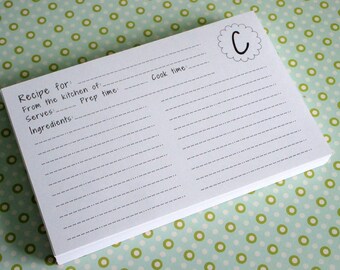 C
Recipe for:
From the kitchen of:
Serves: Prep time: Cook time:
Ingredients: